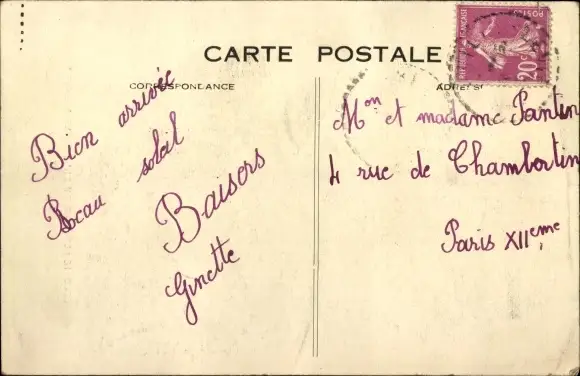 CARTE POSTALE
CORRESPONDANCE
ADRESSE
Bien arrivée
Beau soleil
Baisers
Ginette
Mon et madame Pantin
4 rue de Chambertin
Paris XIIeme
POSTES
20c